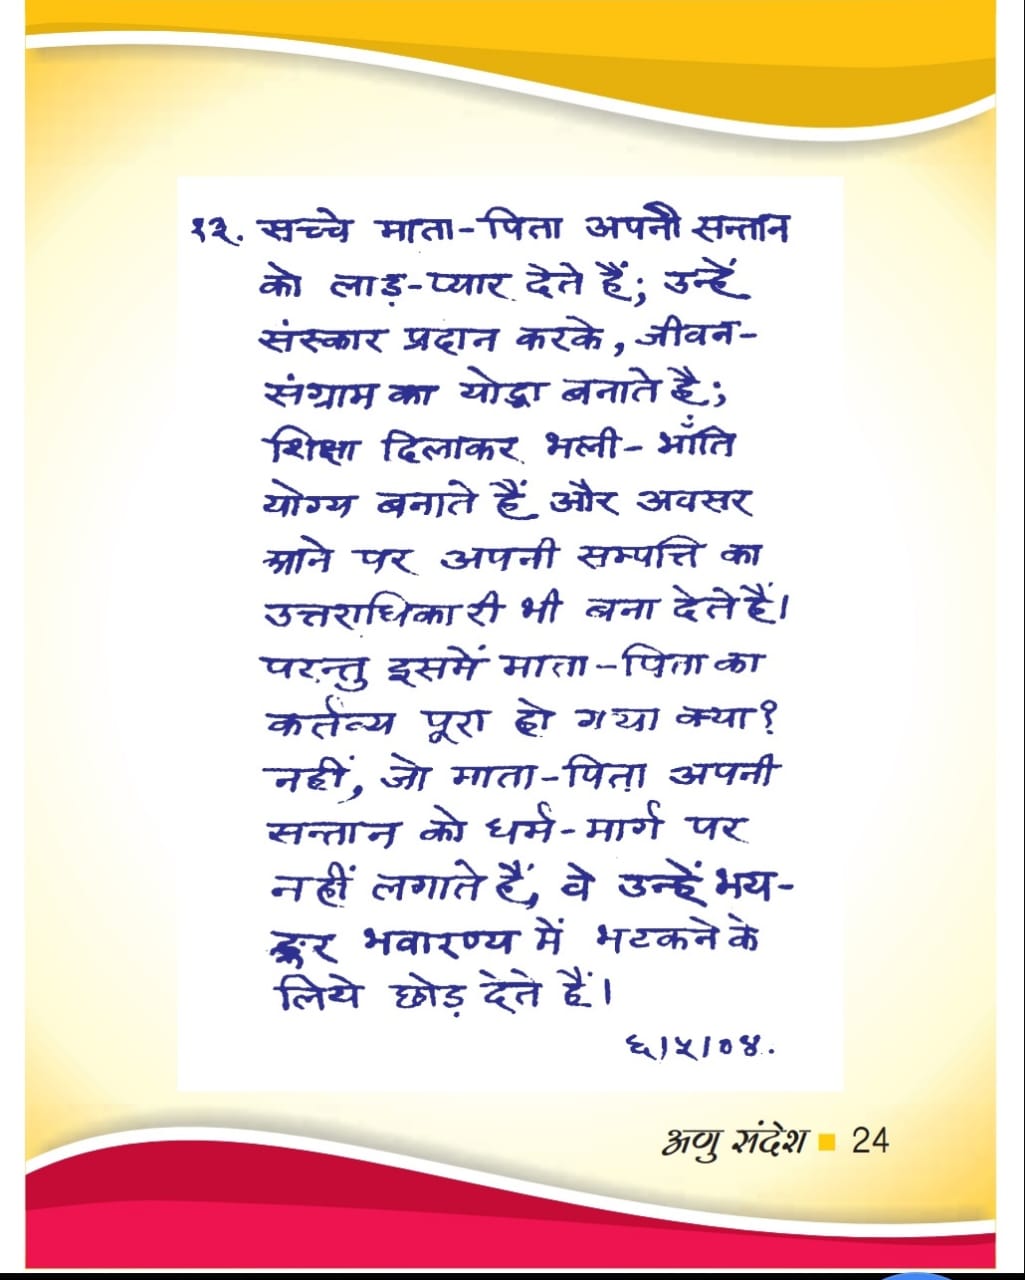 १२. सच्चे माता-पिता अपनी सन्तान
को लाड़-प्यार देते हैं; उन्हें
संस्कार प्रदान करके, जीवन-
संग्राम का योद्धा बनाते है;
शिक्षा दिलाकर भली-भाँति
योग्य बनाते हैं और अवसर
आने पर अपनी सम्पत्ति का
उत्तराधिकारी भी बना देते हैं।
परन्तु इसमें माता-पिता का
कर्तव्य पूरा हो गया क्या?
नहीं, जो माता-पिता अपनी
सन्तान को धर्म-मार्ग पर
नहीं लगाते हैं, वे उन्हें भय-
ङ्कर भवारण्य में भटकने के
लिये छोड़ देते हैं।
६।५।०४.
अणु संदेश ■ 24